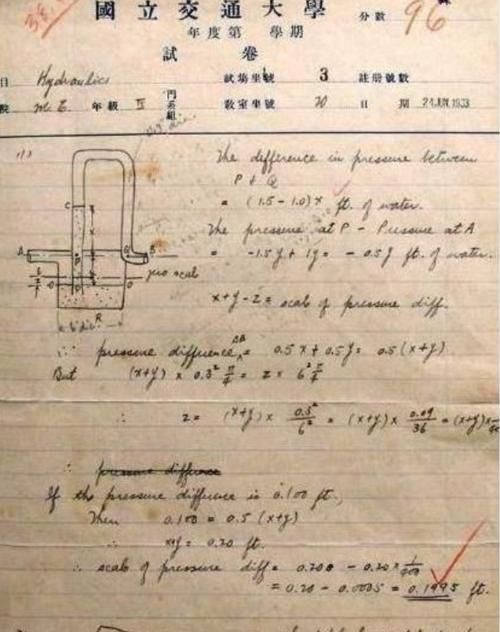 國立交通大學
分數 96
年度第 學期
試卷
Hydraulics
試場坐號 3 註冊號數
M.E. 年級 IV
門系組
教室坐號 20 日期 24 JUN 1933
(1)
The difference in pressure between
P & Q
= (1.5 - 1.0) x ft. of water.
C
The pressure at P - Pressure at A
= -1.5y + 1y = -0.5y ft. of water.
A P Q B
zero scale
x+y-z = scale of pressure diff.
R
6" dia.
∴ pressure difference AB = 0.5x + 0.5y = 0.5(x+y)
But (x+y) × 0.3² π/4 = z × 6² π/4
∴ z = (x+y) × 0.3²/6² = (x+y) × 0.09/36 = (x+y) ×
∴ pressure difference
If the pressure difference is 0.100 ft.,
Then 0.100 = 0.5 (x+y)
∴ x+y = 0.20 ft.
∴ scale of pressure diff = 0.200 - 0.20 × 1/400
= 0.20 - 0.0005 = 0.1995 ft.